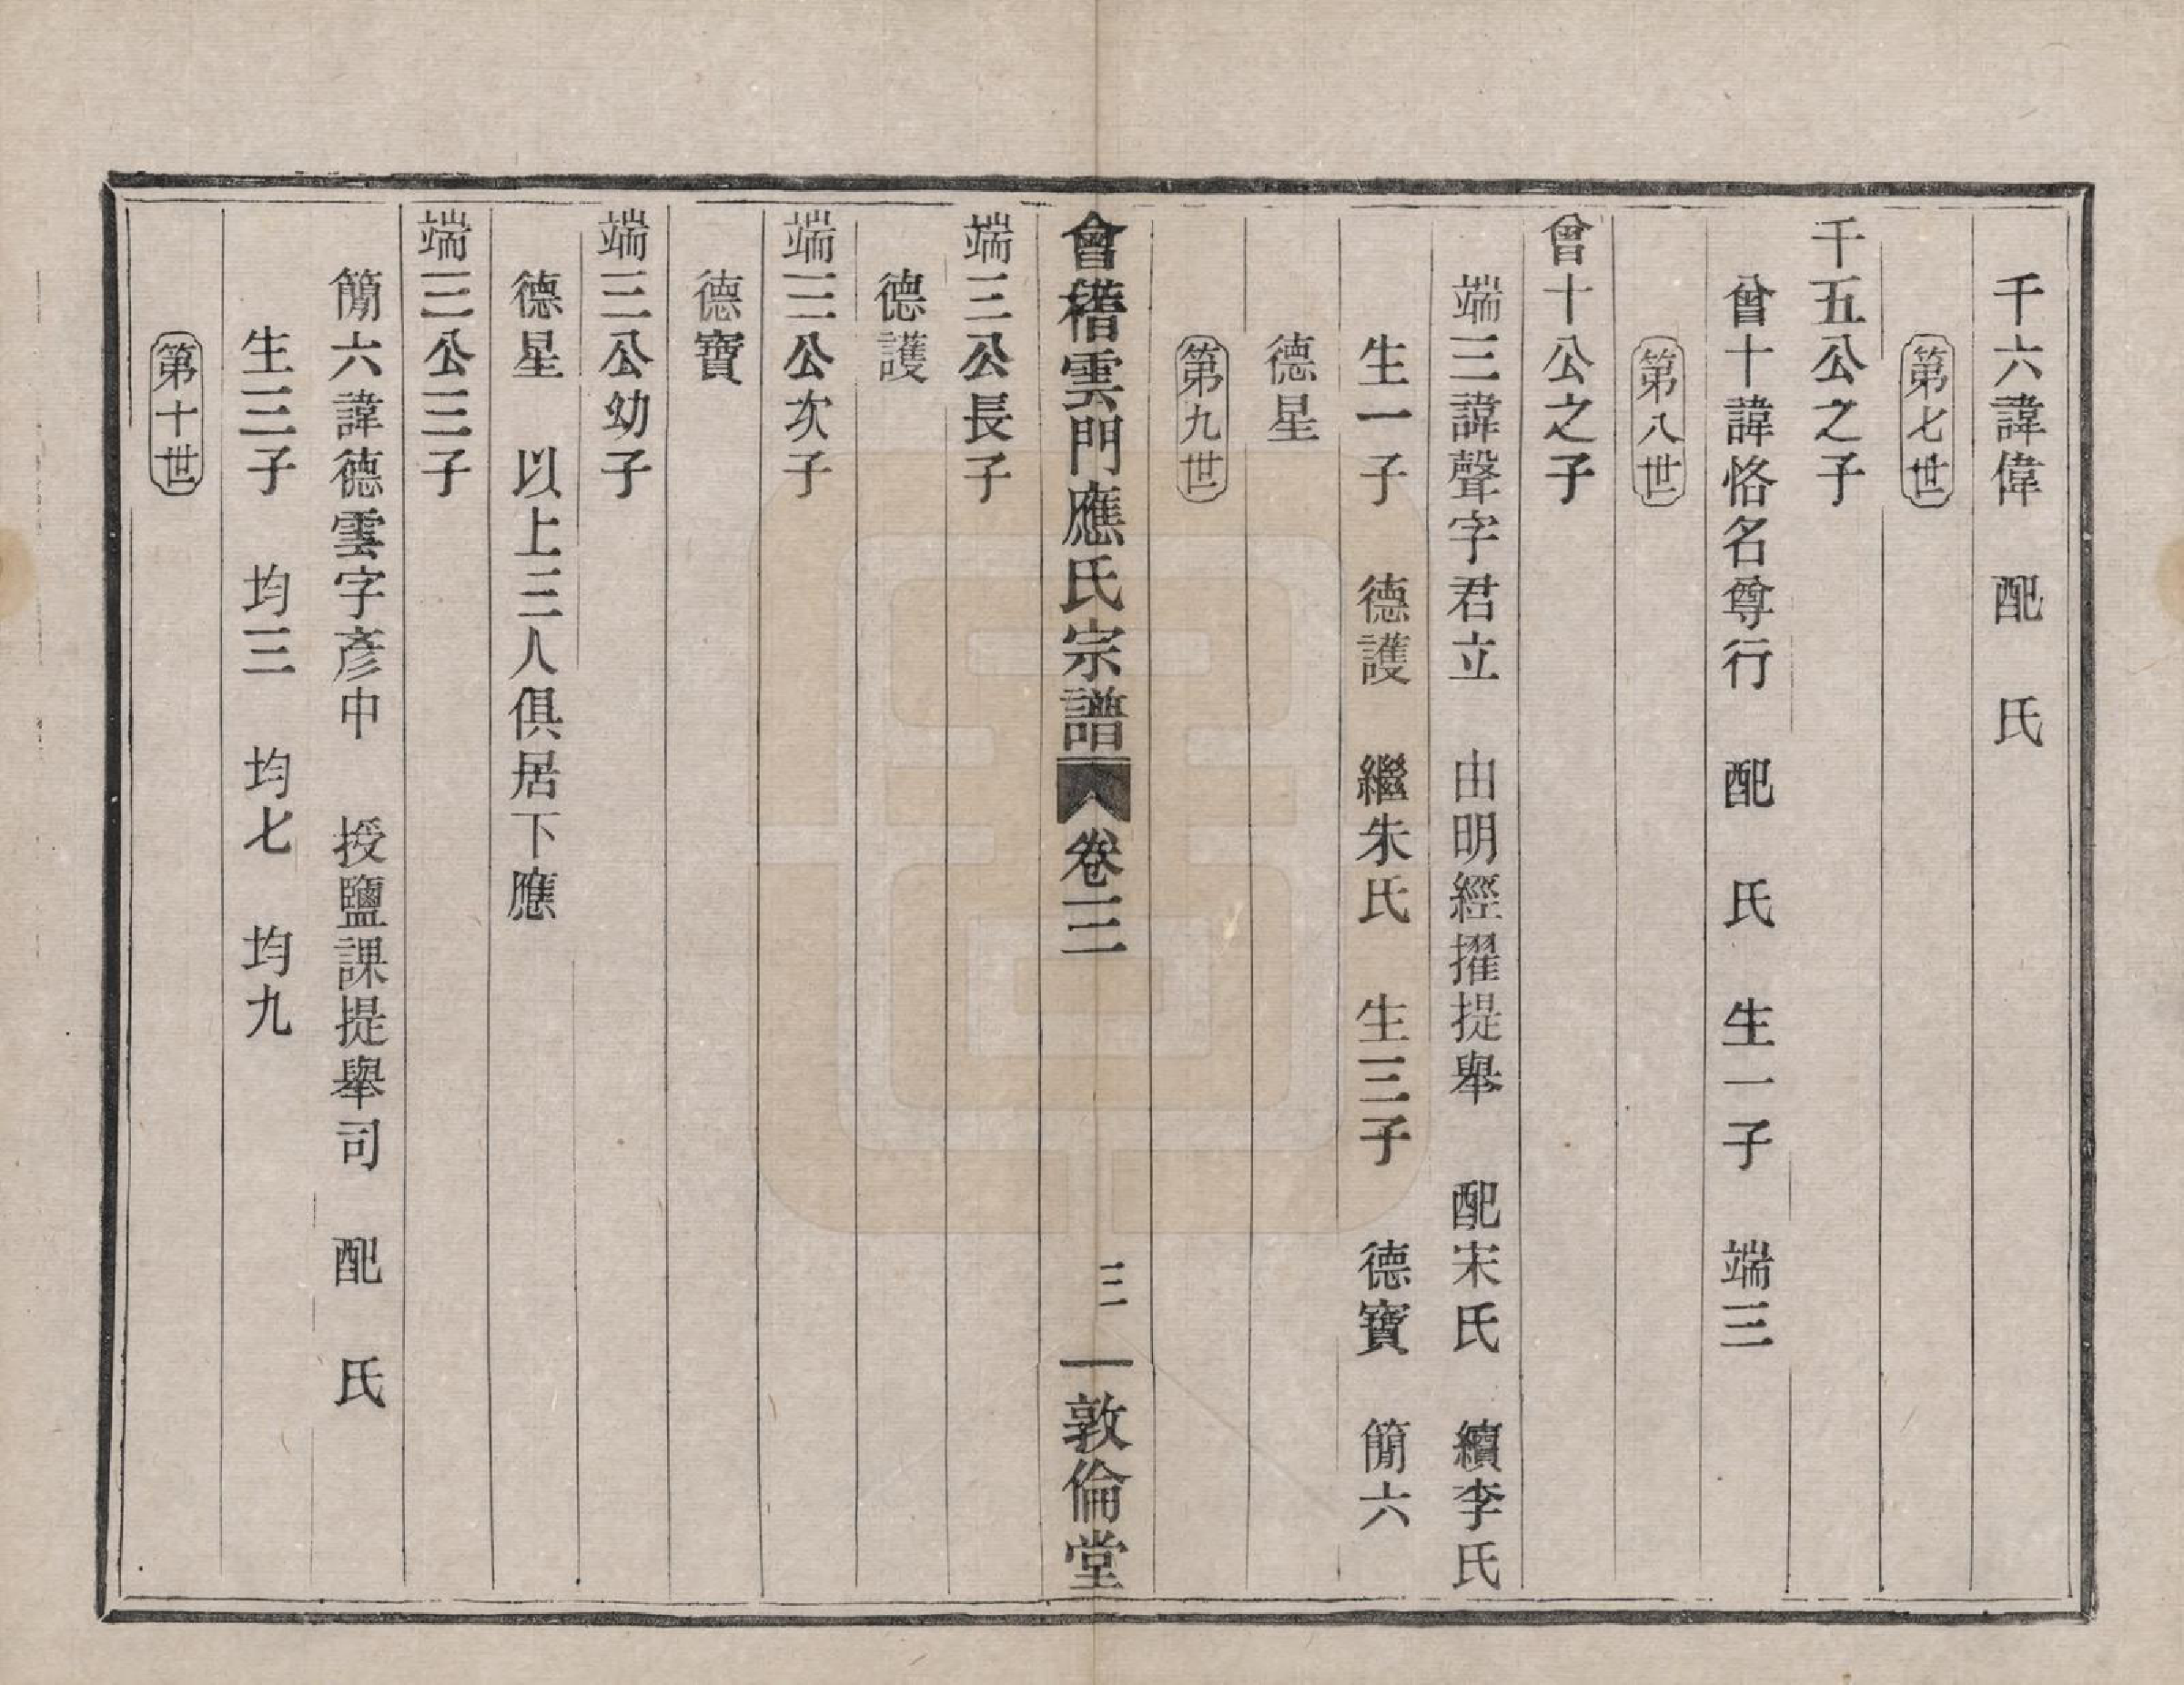 千六諱偉　配　氏
第七世
千五公之子
曾十諱恪名尊行　配　氏　生一子　端三
第八世
曾十公之子
端三諱聲字君立　由明經擢提舉　配宋氏　續李氏
生一子　德護　繼朱氏　生三子　德寶　簡六
德星
第九世
會稽雲門應氏宗譜　卷二　三　敦倫堂
端三公長子
德護
端三公次子
德寶
端三公幼子
德星　以上三人俱居下應
端三公三子
簡六諱德雲字彥中　授鹽課提舉司　配　氏
生三子　均三　均七　均九
第十世